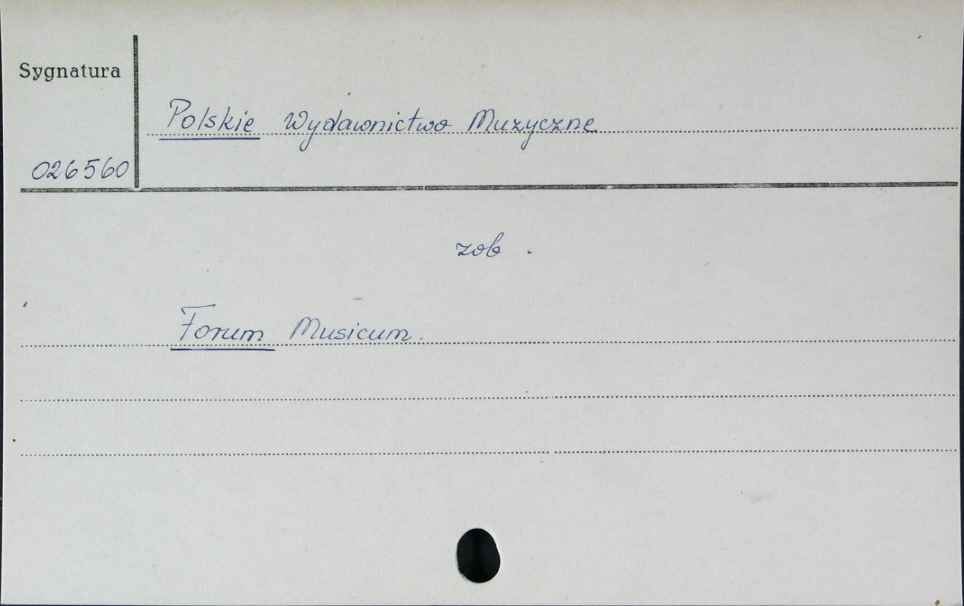 Sygnatura
Polskie Wydawnictwo Muzyczne
026560
zob.
Forum Musicum.